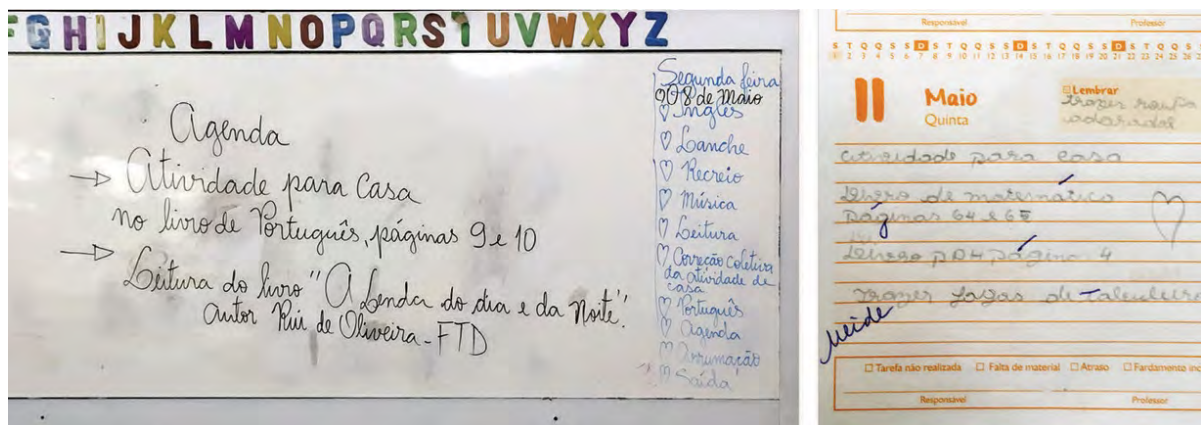 G H I J K L M N O P Q R S T U V W X Y Z
Agenda
→ Atividade para Casa
no livro de Português, páginas 9 e 10
→ Leitura do livro "A Lenda do dia e da Noite".
autor Rui de Oliveira - FTD
Segunda feira
08 de Maio
♡ Inglês
♡ Lanche
♡ Recreio
♡ Música
♡ Leitura
♡ Correção coletiva
da atividade de
casa
♡ Português
♡ Agenda
♡ Arrumação
♡ Saída
Responsável Professor
S T Q Q S S D S T Q Q S S D S T Q Q S S D S T Q Q S
1 2 3 4 5 6 7 8 9 10 11 12 13 14 15 16 17 18 19 20 21 22 23 24 25 26
11 Maio
Quinta
Lembrar
trazer
atividade para casa
de matemática
páginas 64 e 65
página 4
trazer
Neide
Tarefa não realizada Falta de material Atraso Fardamento inc
Responsável Professor